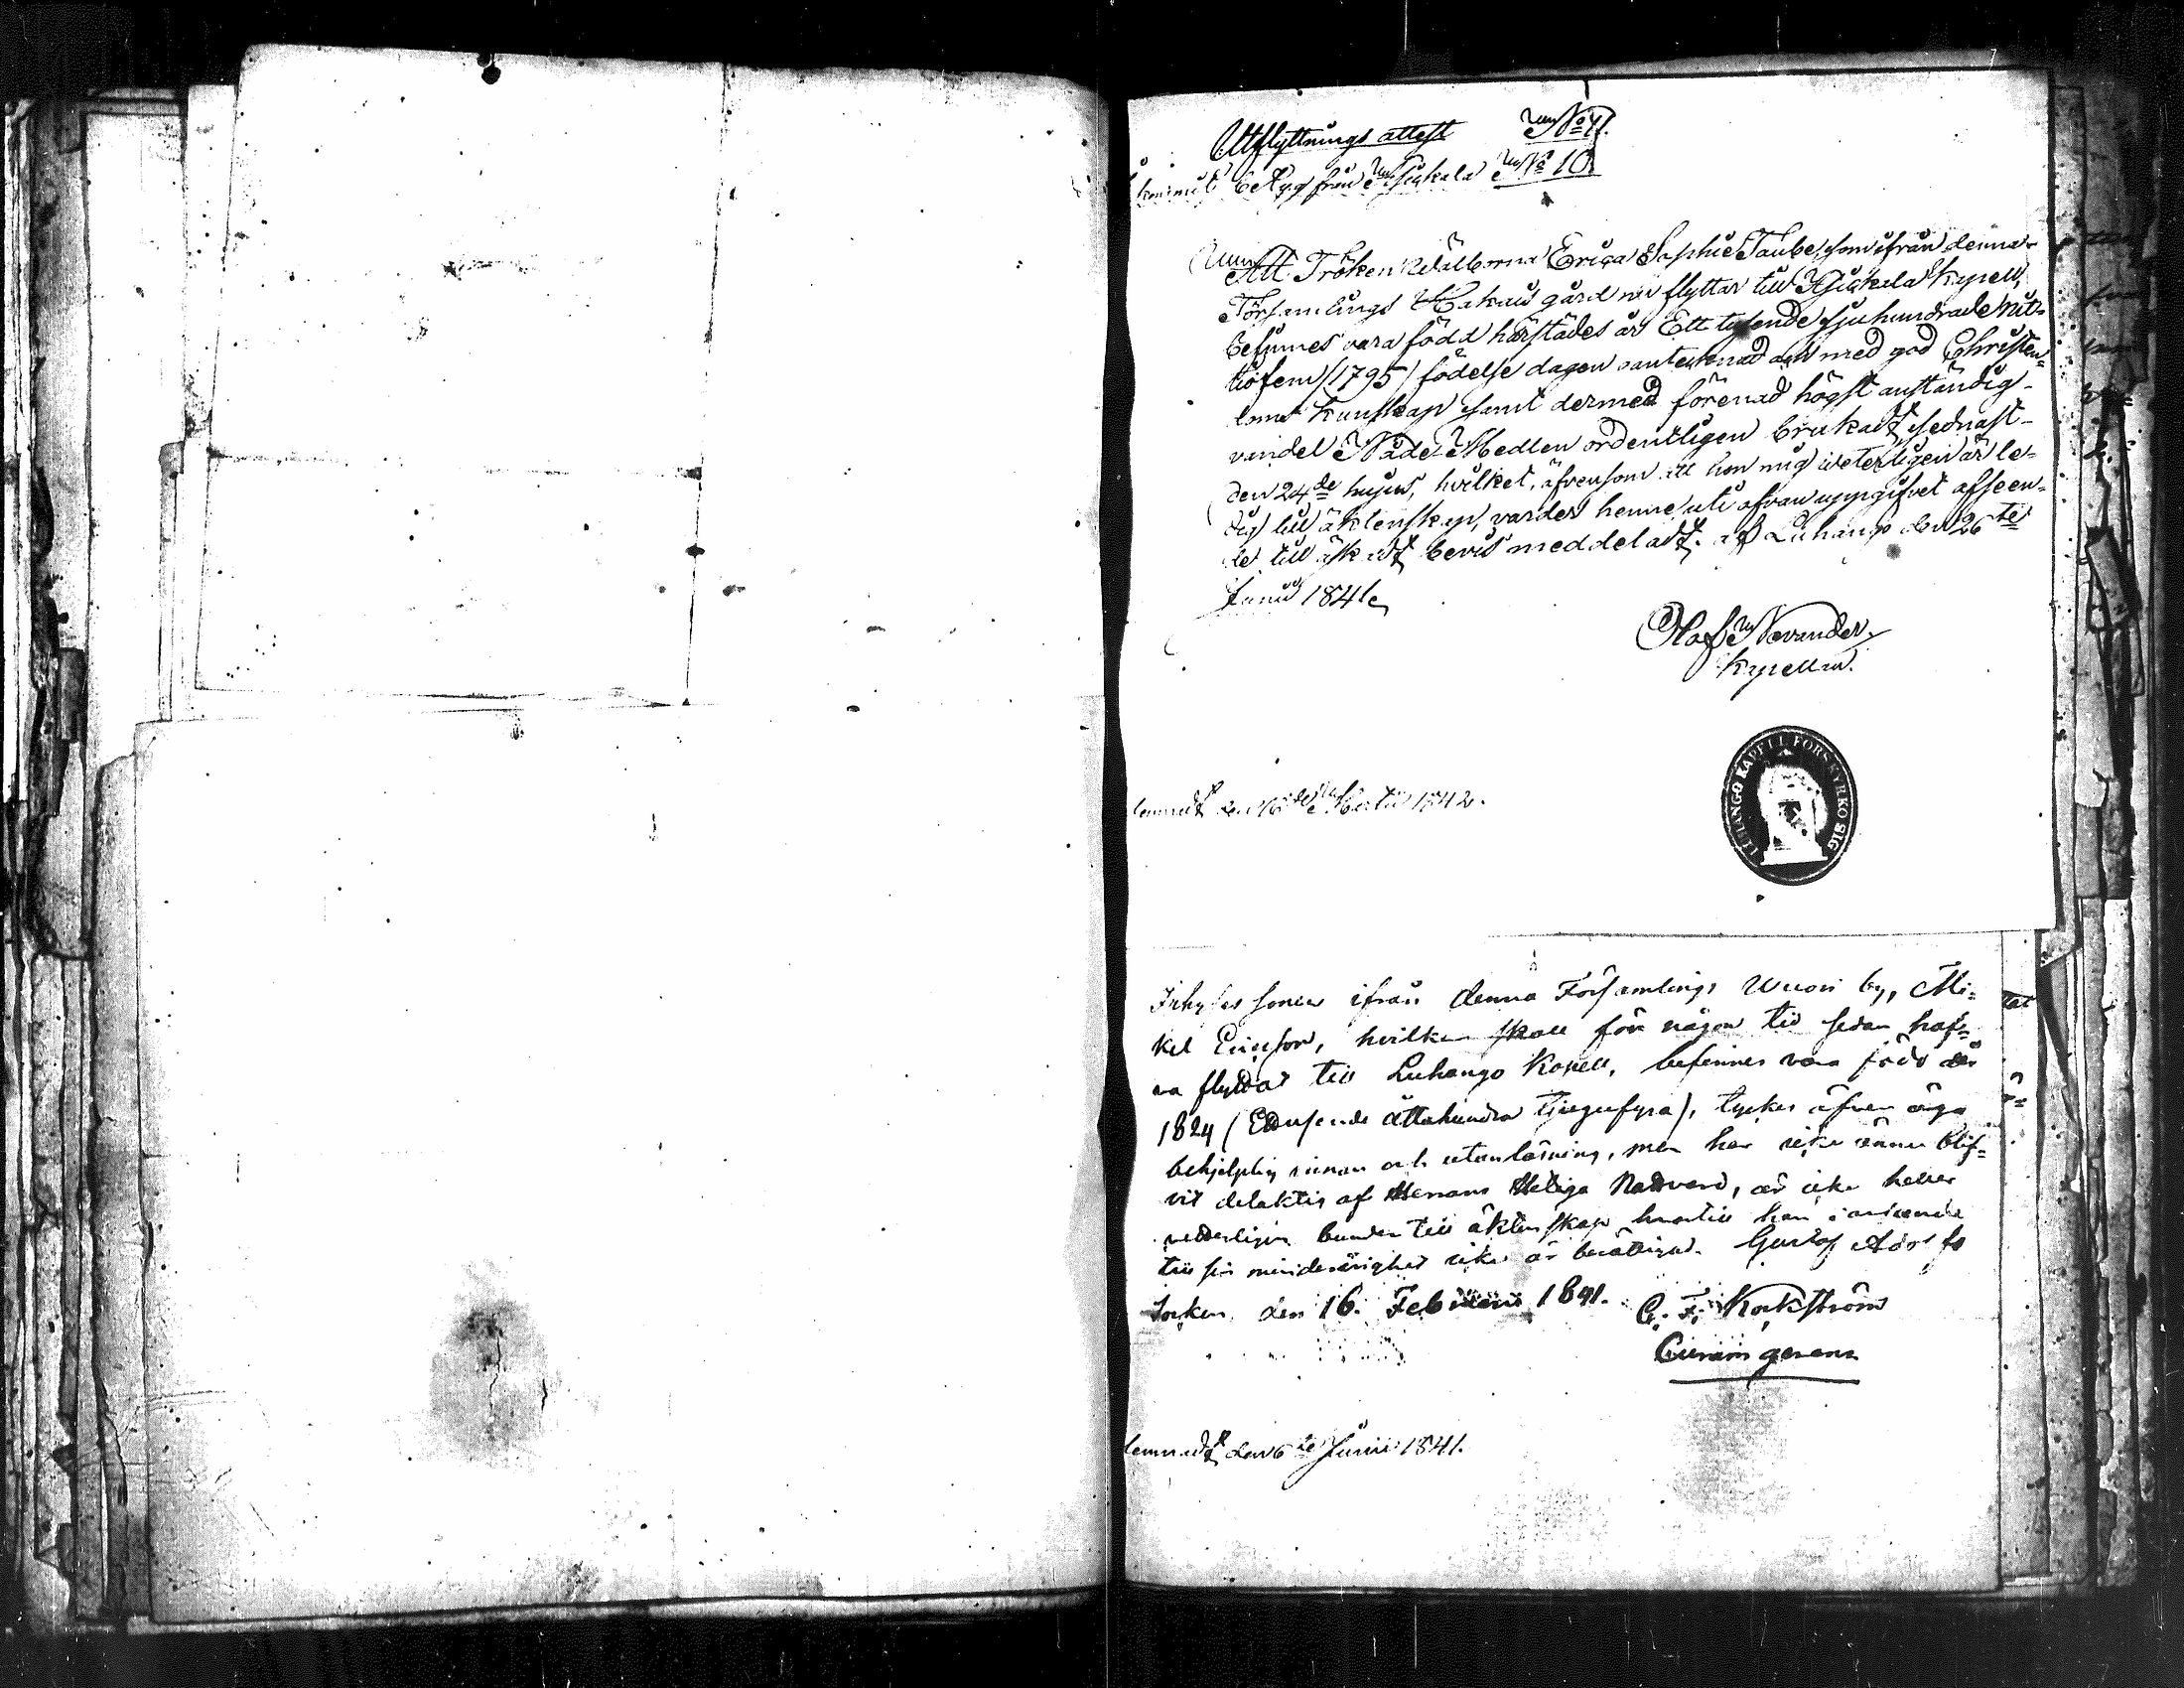 Utflyttnings attest N:o 7.
betyg från N:o 10
Att Fröken Välborna Erica Sophie Taube, som ifrån denna
Församlings Hakais gård nu flyttar till Kapell,
befinnes vara född härstädes år Ett tusende sjuhundrade nit-
tiofem (1795) födelse dagen oanteknad och med god Christen-
doms kunskap samt dermed förenad högst anständig
vandel Nåde-Medlen ordentligen brukat, sednast
den 24de hujus, hvilket, äfvensom att hon mig veterligen är le-
dig till äktenskap, varder henne uti ofvanuppgifvet afseen-
de till äskadt bevis meddeladt. af Luhango den 26te
Junii 1841.
Olof Nevander
Kapellan.
LUHANGO KAPELL FORS KYRKO SIG
lemnadt den 16de Martii 1842.
Inhyses sonen ifrån denna Församlings Wuori by, Mi-
kel Ericsson, hvilken skall för någon tid sedan haf-
va flyttat till Luhango Kapell, befinnes vara född år
1824 (Ettusende åttahundra tjugufyra), tyckes äfven äga
behjelplig innan och utanläsning, men har icke ännu blif-
vit delaktig af Herrans Heliga Nattvard, är icke heller
vetterligen bunden till äktenskap hvartill han i anseende
till sin minderårighet icke är berättigad. Gustaf Adolfs
Socken den 16. Februarii 1841. C. F. Kockström
Curam gerens
lemnadt den 6te Junii 1841.